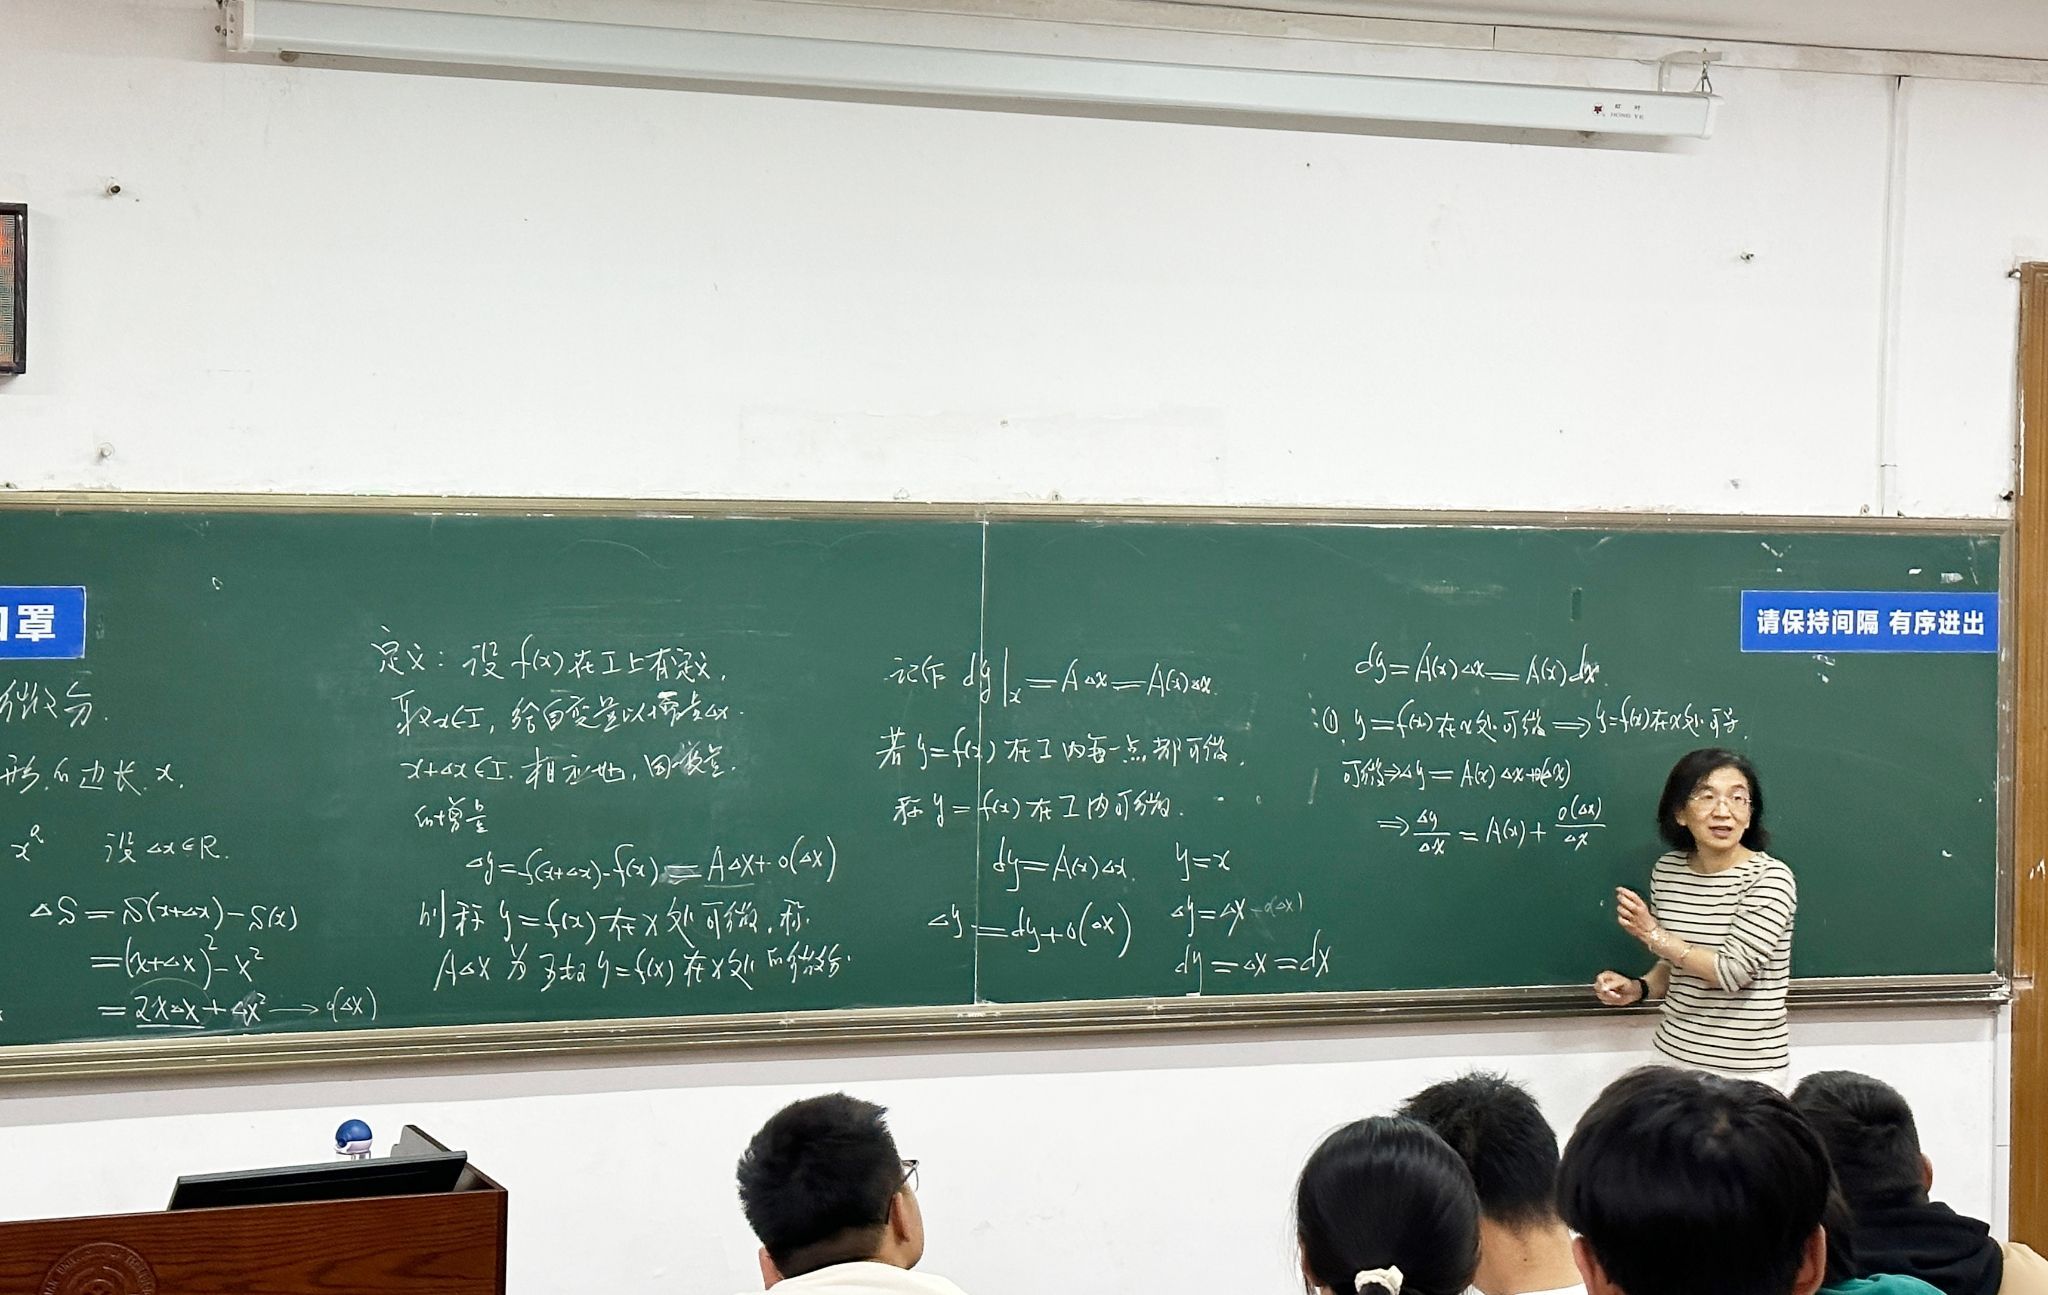 红叶
HONG YE
口罩
请保持间隔 有序进出
微分.
形的边长 x.
x² 设 Δx∈R.
ΔS = S(x+Δx) - S(x)
= (x+Δx)² - x²
= 2xΔx + Δx² → o(Δx)
定义: 设 f(x) 在 I 上有定义,
取 x∈I, 给自变量以增量 Δx.
x+Δx∈I. 相应地, 因变量
的增量
Δy = f(x+Δx) - f(x) = AΔx + o(Δx)
则称 y = f(x) 在 x 处可微, 称
AΔx 为 y = f(x) 在 x 处的微分.
记作 dy|x = AΔx = A(x)Δx.
若 y = f(x) 在 I 内每一点都可微,
称 y = f(x) 在 I 内可微.
dy = A(x)Δx.
Δy = dy + o(Δx)
y = x
Δy = Δx
dy = Δx = dx
dy = A(x)Δx = A(x)dx.
① y = f(x) 在 x 处可微 ⟹ y = f(x) 在 x 处可导.
可微 ⟹ Δy = A(x)Δx + o(Δx)
⟹ Δy/Δx = A(x) + o(Δx)/Δx